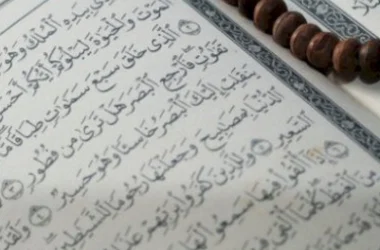 بِيَدِهِ الْمُلْكُ وَهُوَ
الْمَوْتَ وَالْحَيَوٰةَ لِيَبْلُوَكُمْ أَيُّكُمْ أَحْسَنُ
الَّذِي خَلَقَ سَبْعَ سَمَوَٰتٍ طِبَاقًا مَّا
تَفَوُتٍ فَارْجِعِ الْبَصَرَ هَلْ تَرَىٰ مِن فُطُورٍ
يَنقَلِبْ إِلَيْكَ الْبَصَرُ خَاسِئًا وَهُوَ حَسِيرٌ
الدُّنْيَا بِمَصَٰبِيحَ وَجَعَلْنَٰهَا رُجُومًا لِّلشَّيَٰطِينِ
السَّعِيرِ وَلِلَّذِينَ كَفَرُوا بِرَبِّهِمْ عَذَابُ
إِذَا أُلْقُوا فِيهَا سَمِعُوا لَهَا
مِنَ الْغَيْظِ كُلَّمَا أُلْقِيَ